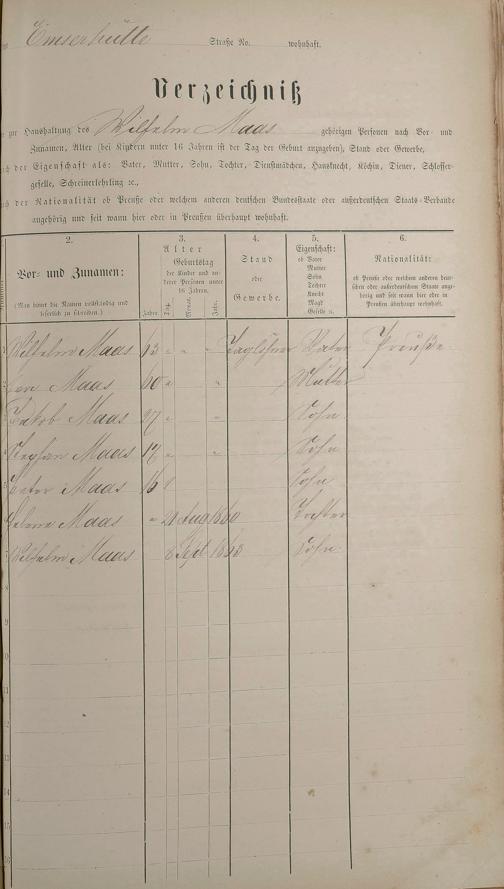 Emserhütte Straße No. wohnhaft.
Verzeichniß
zur Haushaltung des Wilhelm Maas gehörigen Personen nach Vor- und
Zunamen, Alter (bei Kindern unter 16 Jahren ist der Tag der Geburt anzugeben), Stand oder Gewerbe,
der Eigenschaft als: Vater, Mutter, Sohn, Tochter, Dienstmädchen, Hausknecht, Köchin, Diener, Schlosser-
geselle, Schreinerlehrling ꝛc.,
der Nationalität ob Preuße oder welchem anderen deutschen Bundesstaate oder außerdeutschen Staats-Verbande
angehörig und seit wann hier oder in Preußen überhaupt wohnhaft.
2. 3. 4. 5. 6.
Vor- und Zunamen:
(Man bittet die Namen vollständig und
leserlich zu schreiben.)
Alter
Geburtstag
der Kinder und an-
derer Personen unter
16 Jahren.
Jahre. Tag. Monat. Jahr.
Stand
oder
Gewerbe.
Eigenschaft:
ob Vater
Mutter
Sohn
Tochter
Knecht
Magd
Geselle u.
Nationalität:
ob Preuße oder welchem anderen deut-
schen oder außerdeutschen Staate ange-
hörig und seit wann hier oder in
Preußen überhaupt wohnhaft.
Wilhelm Maas " " " Taglöhner Vater Preuße
Maas 60 " " Mutter
Jakob Maas " " Sohn
Stephan Maas " " Sohn
Peter Maas 16 Sohn
Maas " 21 Aug 1860 Tochter
Wilhelm Maas 8 Sept 1863 Sohn
8
9
10
11
12
13
14
15
16